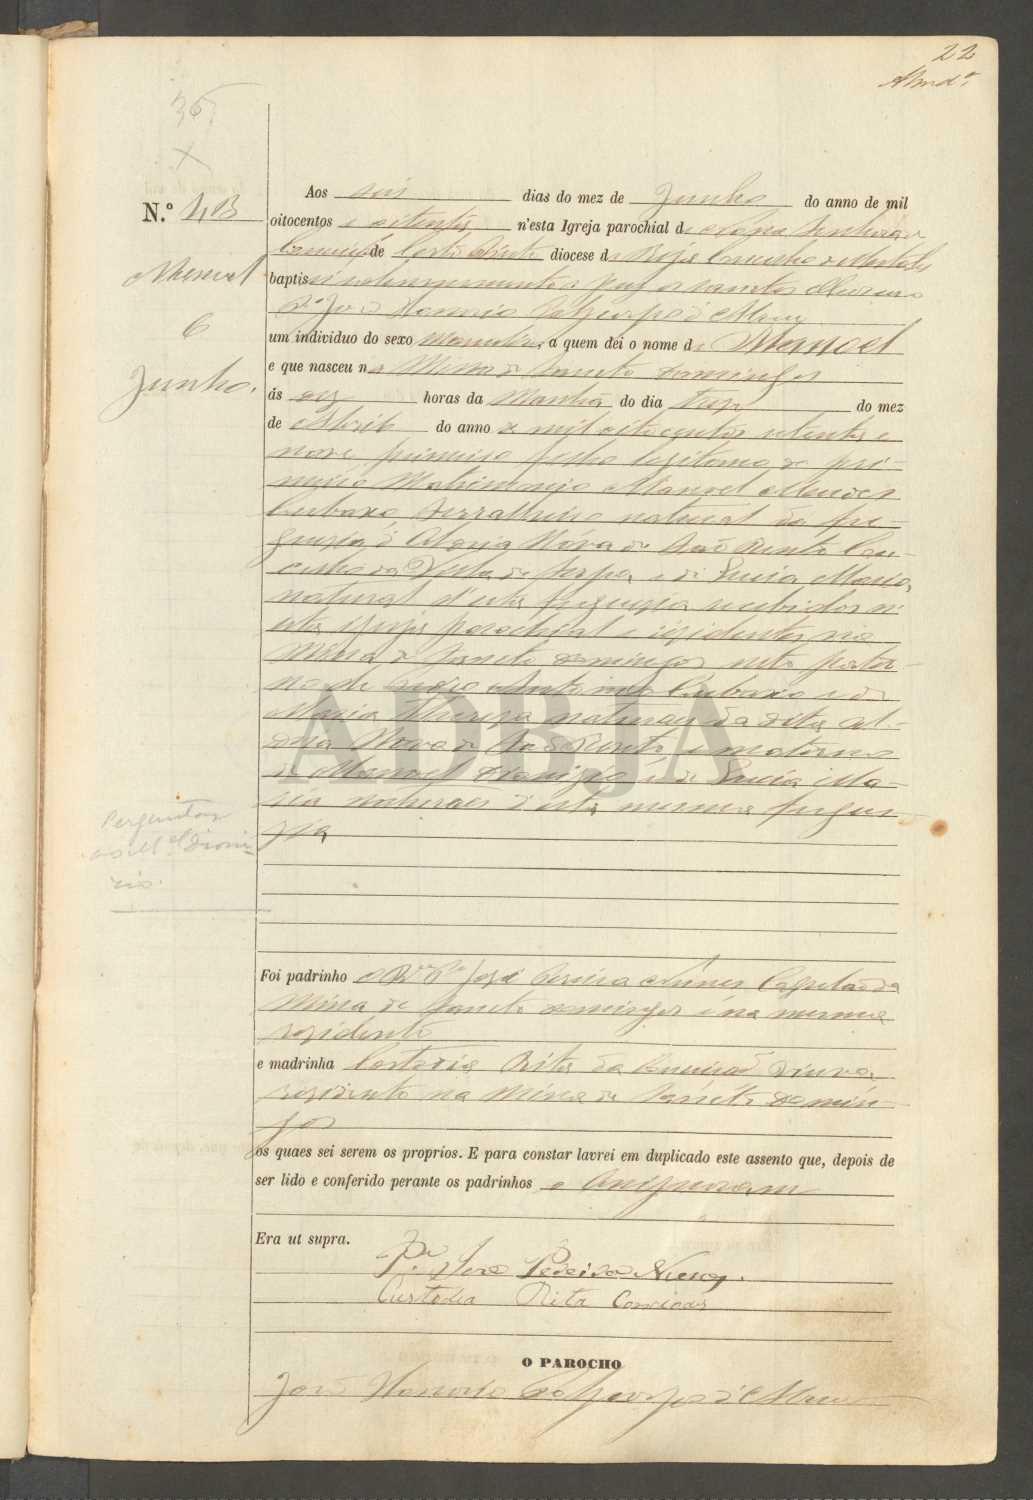 22
Almd.ª
36
X
N.º 43
Manoel
6
Junho.
Aos seis dias do mez de Junho do anno de mil
oitocentos e oitenta, n'esta Igreja parochial de Nossa Senhora da
Conceição de Corte do Pinto diocese de Beja Concelho de Mertola
baptisei solemnemente e puz os sanctos oleos
um individuo do sexo masculino, a quem dei o nome de Manoel
e que nasceu na Mina de Sancto Domingos
ás dez horas da Manhã do dia trez do mez
de Abril do anno de mil oitocentos setenta e
nove primeiro filho legitimo de pri-
meiro Matrimonio Manoel Mendes
natural da fre-
guezia d'Aldeia Nova de São Bento Con-
celho da Villa de Serpa e de Lucia Maria
natural d'esta freguezia recebidos n'
esta igreja parochial e rezidentes na
Mina de Sancto Domingos neto pater-
no de Antonio e de
Maria Thereza naturaes da dita Al-
deia Nova de São Bento, e materno
de Manoel Dionizio e de Lucia Ma-
ria naturaes d'esta mesma fregue-
zia
Foi padrinho o José Pereira Nunes Capelão da
Mina de Sancto Domingos e na mesma
rezidente
e madrinha Custodia Rita da Conceição viuva
rezidente na Mina de Sancto Domin-
gos
os quaes sei serem os proprios. E para constar lavrei em duplicado este assento que, depois de
ser lido e conferido perante os padrinhos e assignaram
Era ut supra.
P.e José Pereira Nunes.
Custodia Rita Conceição
O PAROCHO
José
Perguntar
ao M.el Dioni-
zio.
ADBJA